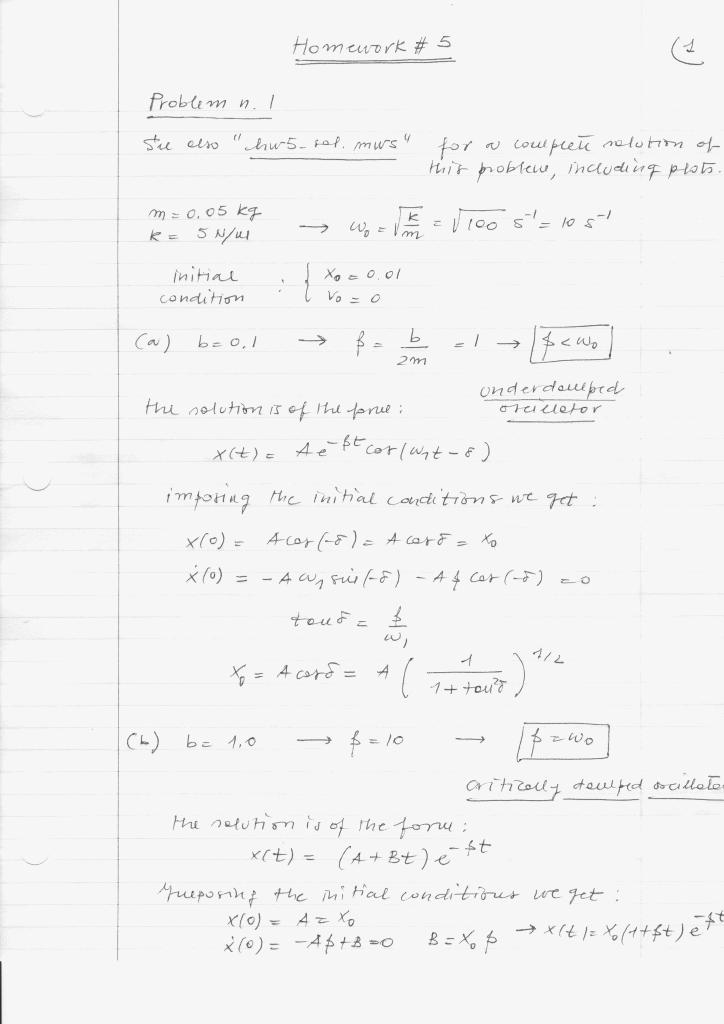 Homework # 5
(1
Problem n. 1
See also "hw5-sol.mws" for a complete solution of
this problem, including plots.
m = 0.05 kg
k = 5 N/m → ω₀ = √(k/m) = √100 s⁻¹ = 10 s⁻¹
initial condition : { x₀ = 0.01
v₀ = 0
(a) b = 0.1 → β = b/2m = 1 → β < ω₀
underdamped
oscillator
the solution is of the form:
x(t) = A e^(-βt) cos(ω₁t - δ)
imposing the initial conditions we get :
x(0) = A cos(-δ) = A cos δ = x₀
ẋ(0) = -A ω₁ sin(-δ) - A β cos(-δ) = 0
tan δ = β/ω₁
x₀ = A cos δ = A (1/(1 + tan²δ))^(1/2)
(b) b = 1.0 → β = 10 → β = ω₀
critically damped oscillator
the solution is of the form:
x(t) = (A + Bt) e^(-βt)
Imposing the initial conditions we get :
x(0) = A = x₀
ẋ(0) = -Aβ + B = 0 B = x₀ β → x(t) = x₀(1+βt) e^(-βt)